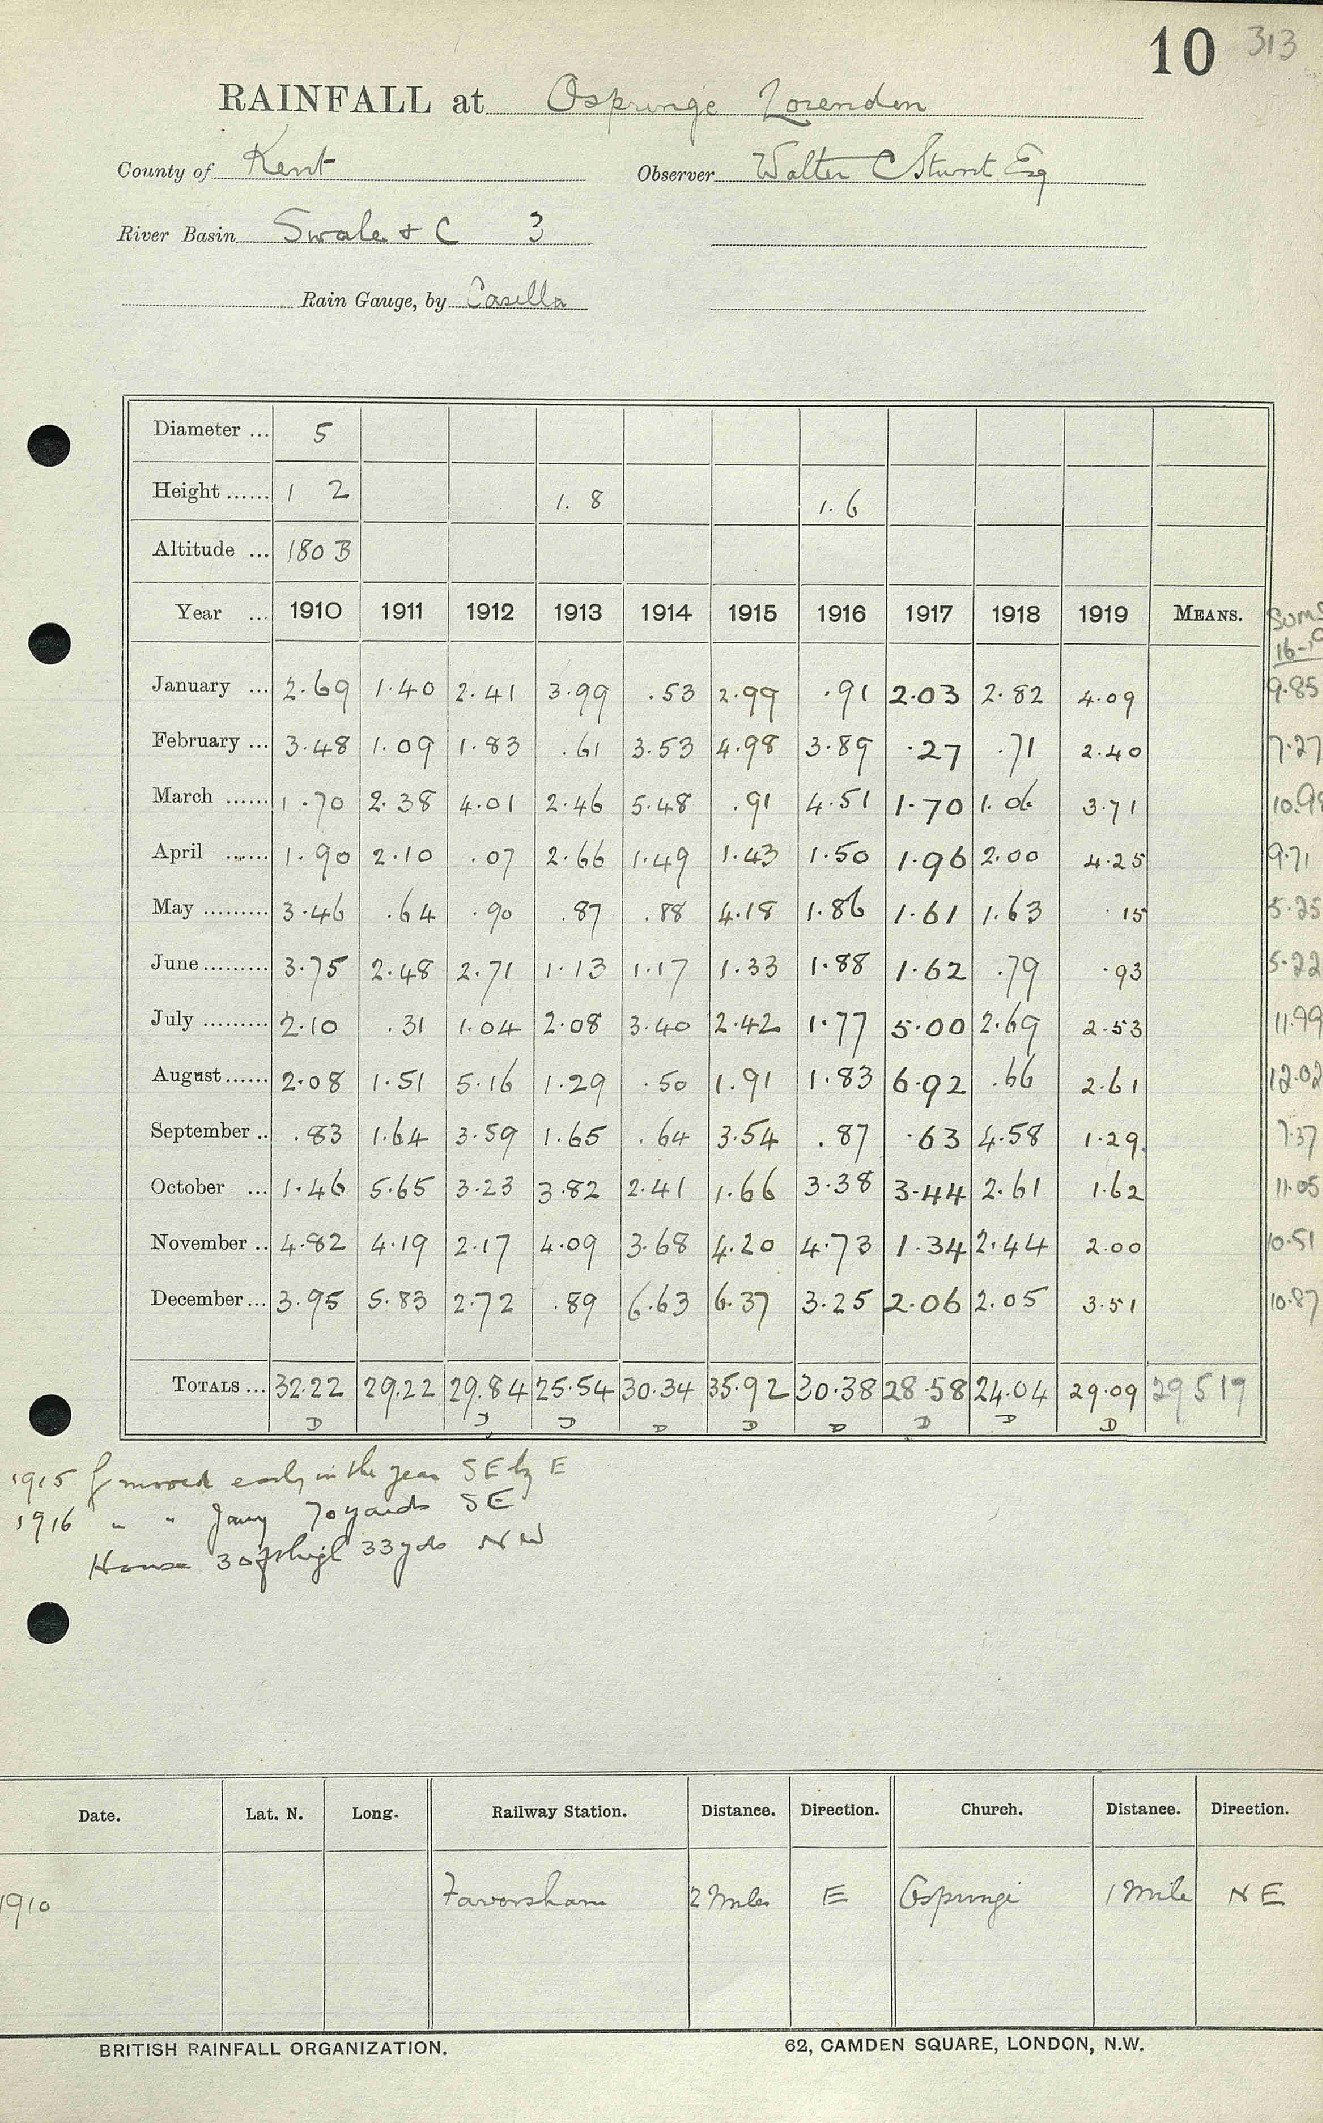 10 313
RAINFALL at Ospringe Lorenden
County of Kent Observer Walter C Stunt Esq
River Basin Swale & C 3
Rain Gauge, by Casella
Diameter ... 5
Height ...... 1 2 1. 8 1. 6
Altitude ... 180 B
Year ... 1910 1911 1912 1913 1914 1915 1916 1917 1918 1919 MEANS. Sums
16-19
January ... 2.69 1.40 2.41 3.99 .53 2.99 .91 2.03 2.82 4.09 9.85
February ... 3.48 1.09 1.83 .61 3.53 4.98 3.89 .27 .71 2.40 7.27
March ...... 1.70 2.38 4.01 2.46 5.48 .91 4.51 1.70 1.06 3.71 10.98
April ...... 1.90 2.10 .07 2.66 1.49 1.43 1.50 1.96 2.00 4.25 9.71
May ......... 3.46 .64 .90 .87 .88 4.18 1.86 1.61 1.63 .15 5.25
June ......... 3.75 2.48 2.71 1.13 1.17 1.33 1.88 1.62 .79 .93 5.22
July ......... 2.10 .31 1.04 2.08 3.40 2.42 1.77 5.00 2.69 2.53 11.99
August ...... 2.08 1.51 5.16 1.29 .50 1.91 1.83 6.92 .66 2.61 12.02
September .. .83 1.64 3.59 1.65 .64 3.54 .87 .63 4.58 1.29 7.37
October ... 1.46 5.65 3.23 3.82 2.41 1.66 3.38 3.44 2.61 1.62 11.05
November .. 4.82 4.19 2.17 4.09 3.68 4.20 4.73 1.34 2.44 2.00 10.51
December ... 3.95 5.83 2.72 .89 6.63 6.37 3.25 2.06 2.05 3.51 10.87
TOTALS ... 32.22 29.22 29.84 25.54 30.34 35.92 30.38 28.58 24.04 29.09 29519
D D D D D D D D D
1915 moved early in the year SE by E
1916 " " Jany 70 yards SE
House 30 high 33 yds NW
Date. Lat. N. Long. Railway Station. Distance. Direction. Church. Distance. Direction.
1910 Faversham 2 Miles E Ospringe 1 Mile NE
BRITISH RAINFALL ORGANIZATION. 62, CAMDEN SQUARE, LONDON, N.W.